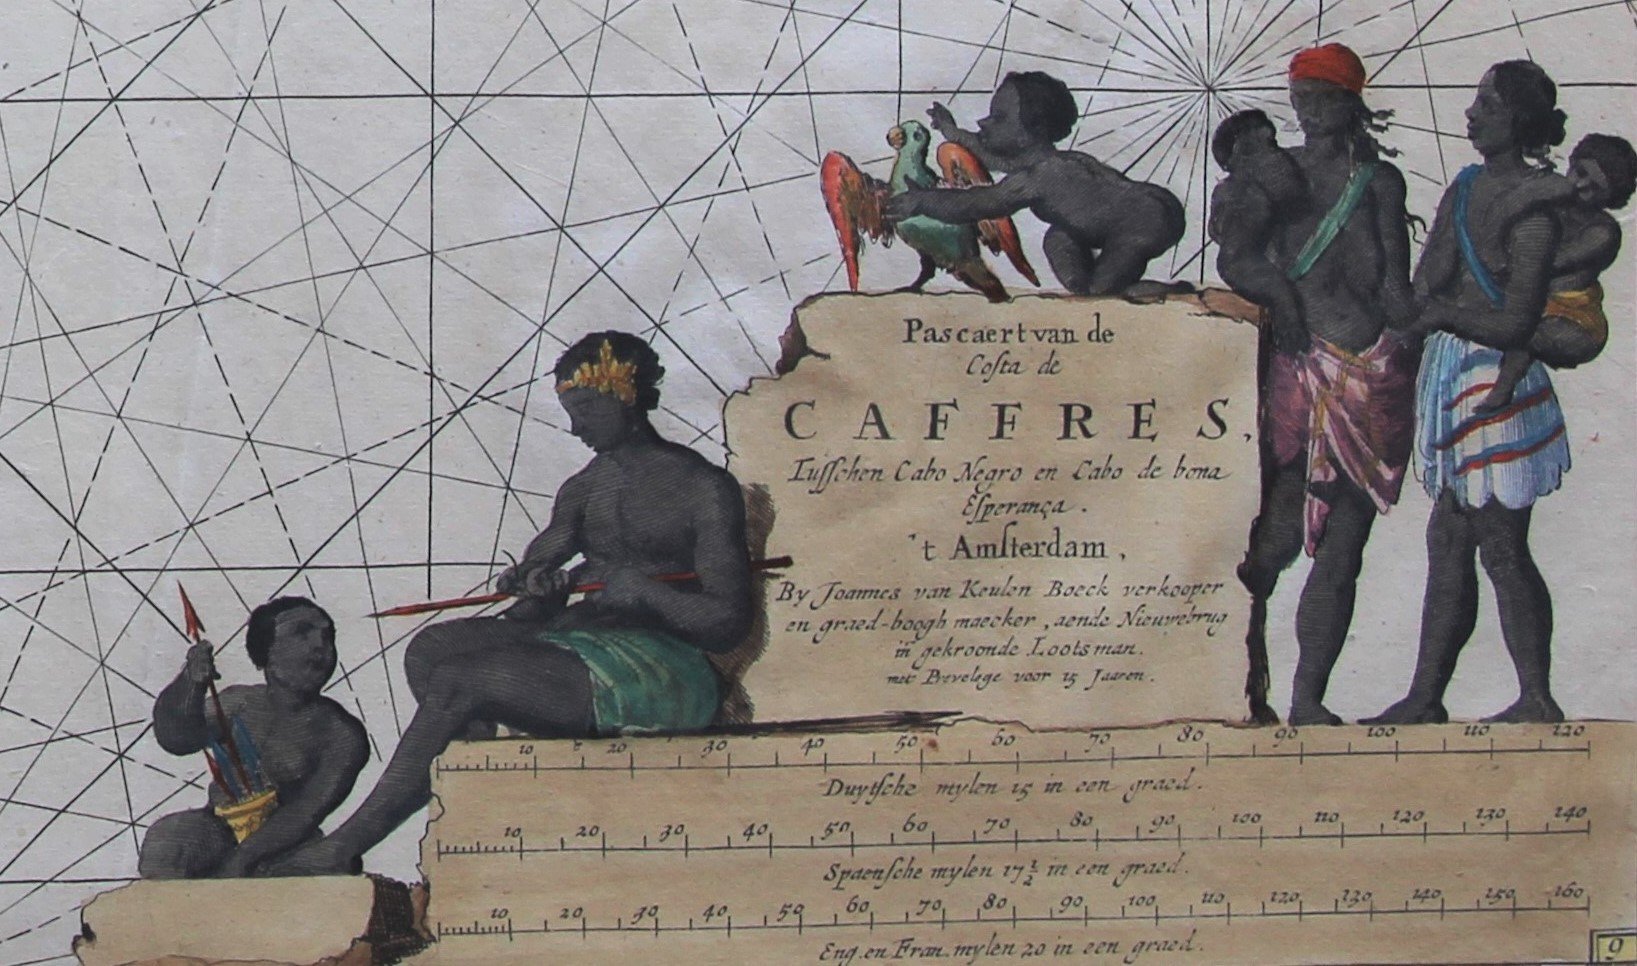 Pascaert van de
Coſta de
CAFFRES,
Tuſſchen Cabo Negro en Cabo de bona
Eſperança.
't Amſterdam,
By Joannes van Keulen Boeck verkooper
en graed-boogh maecker, aende Nieuwebrug
in gekroonde Lootsman.
met Prevelege voor 15 Jaaren.
10 20 30 40 50 60 70 80 90 100 110 120
Duytſche mylen 15 in een graed.
10 20 30 40 50 60 70 80 90 100 110 120 130 140
Spaenſche mylen 17½ in een graed.
10 20 30 40 50 60 70 80 90 100 110 120 130 140 150 160
Eng. en Fran. mylen 20 in een graed.
9